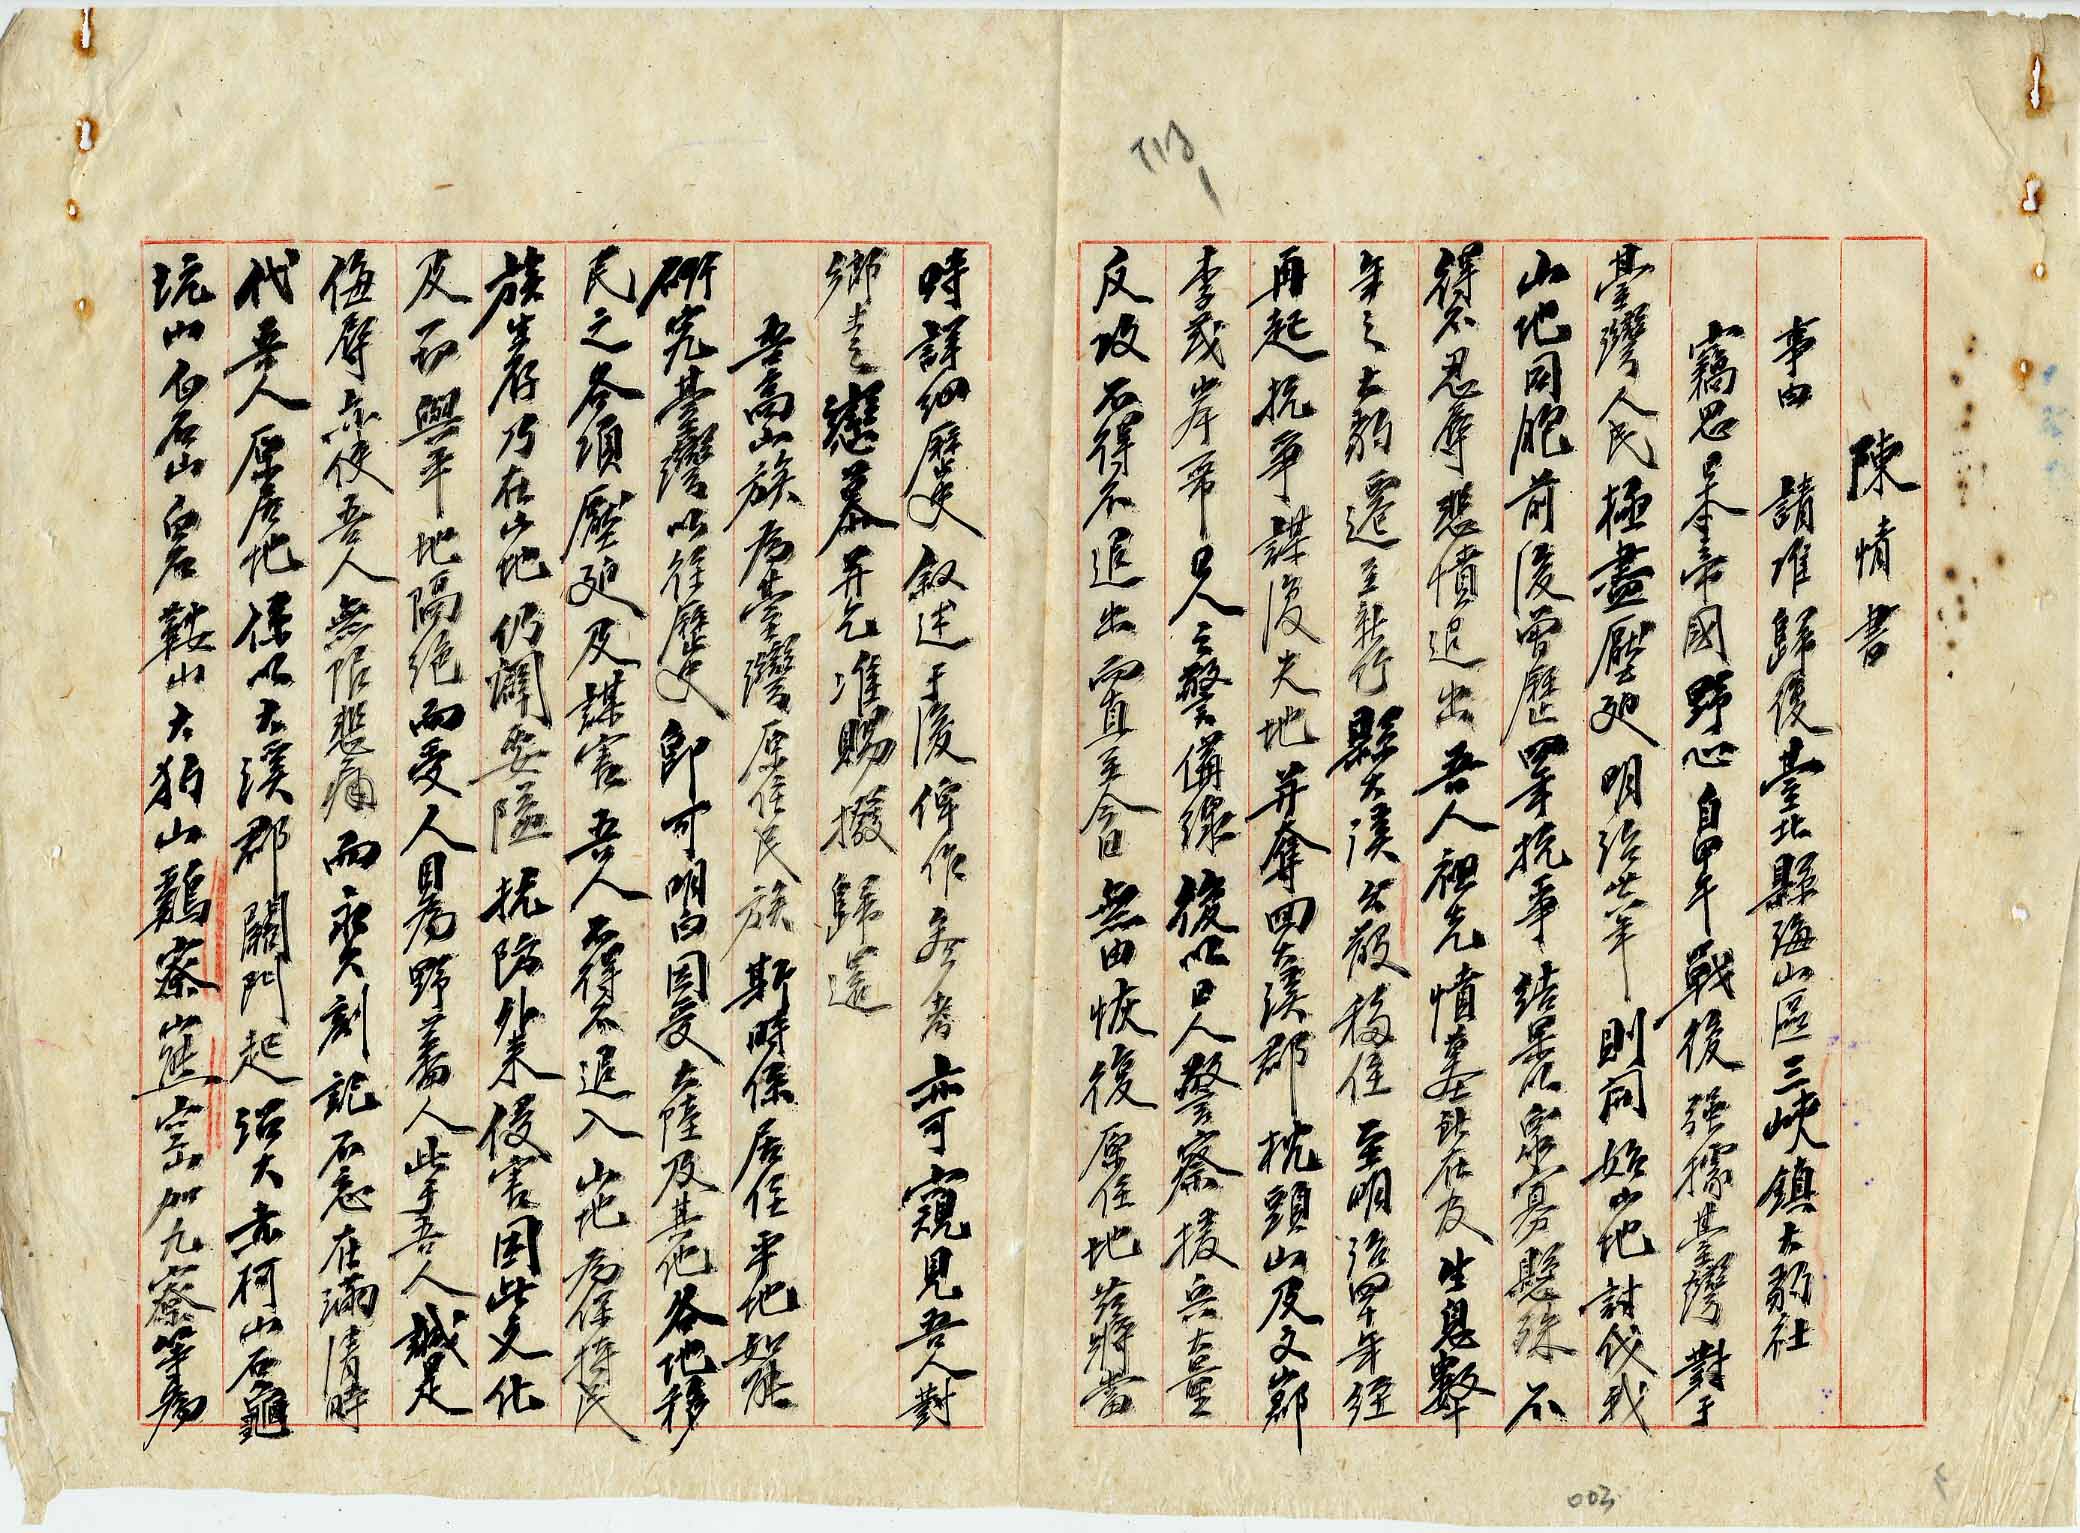 陳情書
事由　請准歸復臺北縣海山區三峽鎮大豹社
竊思日本帝國野心自甲午戰後強據臺灣對于
臺灣人民極盡壓廹明治卅六年則開始山地討伐我
山地同胞前後曾歷四年抗爭結果以眾寡懸殊不
得不忍辱悲憤退出吾人祖先憤墓所在及生息數
年之大豹遷至新竹縣大溪　散移住至明治四十年經
再起抗爭謀復失地并奪回大溪郡枕頭山及文山郡
李茂岸番日人之警備線後以日人警察援兵大量
反攻不得不退出而直至今日無由恢復原住地茲將當
時詳細歷史叙述于後俾作參考亦可窺見吾人對
鄉土之戀慕并乞准賜撥歸還
吾高山族為臺灣原住民族斯時係居住平地如能
研究臺灣以往歷史即可明白因受大陸及其他各地移
民之各項壓廹及謀害吾人不得不退入山地為保持民
族生存乃在山地仍闢要隘抗防外來侵害因此文化
及而與平地隔絕而受人目為野蕃人此乎吾人誠是
侮辱亦使吾人無限悲痛而永久刻記不忘在滿清時
代吾人原居地係以大溪郡關門起沿大赤柯山石龜
坑山白石山白石鞍山大豹山鷄寮　崙加九寮等為